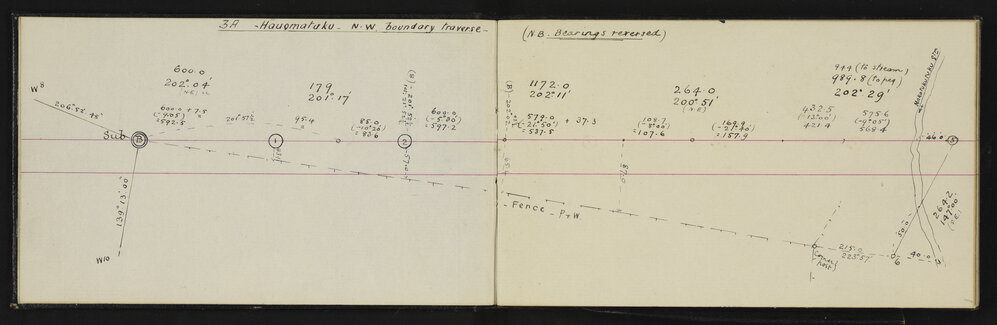 3A - Hauomatuku - N.W. boundary traverse -
(N.B. Bearings reversed)
600.0
202° 04'
179.
201° 17'
1172.0
202° 11'
264.0
200° 51'
(+E)
944 (to stream)
989.8 (to peg)
202° 29'
W8
206° 52' 45"
600.0 + 7.5
=592.5
201° 57½
95.4
85.0
(-10° 20')
=83.6
600.0
(-5° 00')
=597.2
579.0
(-21° 50')
=537.5
+ 37.3
108.7
(-8° 00')
=107.6
169.9
(-21° 40')
=157.9
432.5
(-13° 00')
421.4
575.6
(-9° 05')
568.4
Sub
B
1
2
46.0
5
139° 13' 00"
W10
57.0
67.0
Fence - P+W
215.0
223° 57'
6
40.0
50.0
264.2
147° 00'